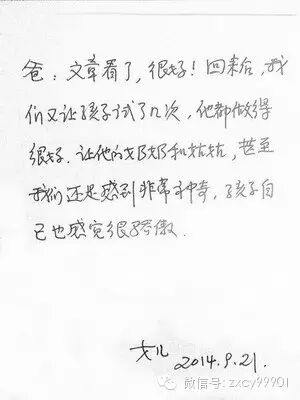 爸：文章看了，很好！回来后，我
们又让孩子试了几次，他都做得
很好．让他的奶奶和姑姑，甚至
我们还是感到非常神奇，孩子自
己也感觉很骄傲．
女儿 2014.9.21.
微信号: zxcy99901